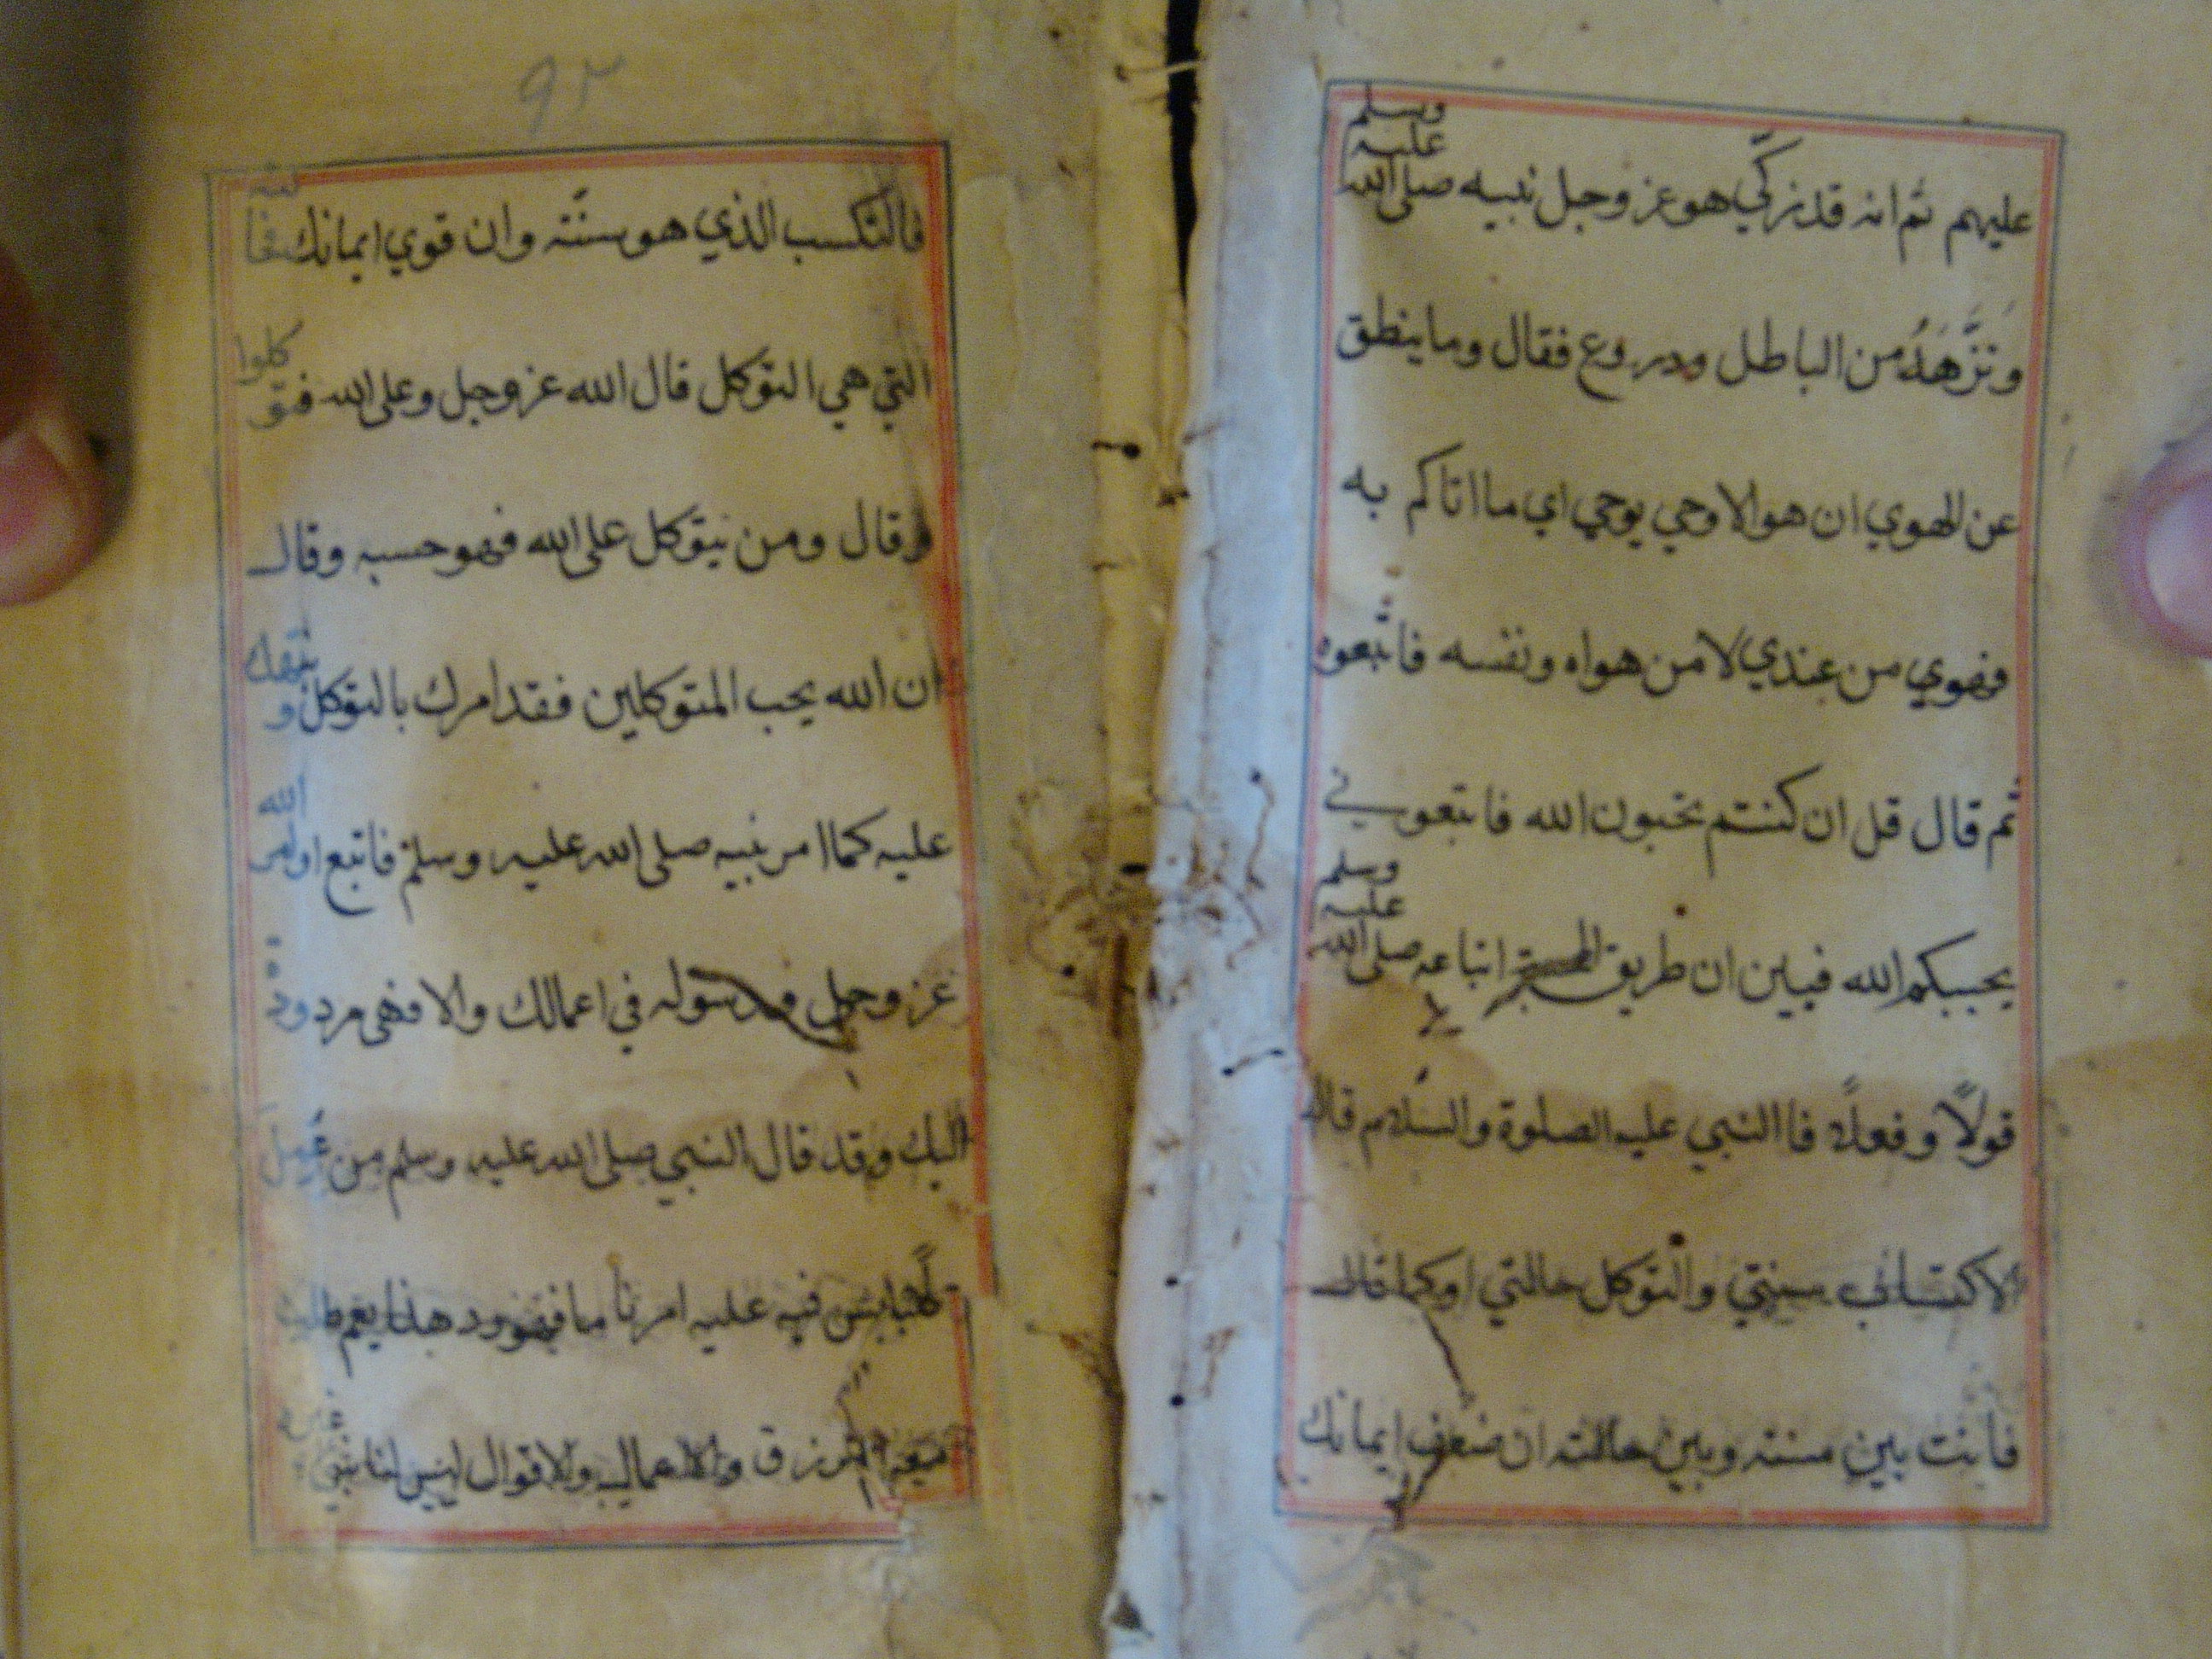 عليهم ثم انه قد زكّي هو عز وجل نبيه صلى الله عليه وسلم
وَنَزَّهَهُ من الباطل و فقال وما ينطق
عن الهوي ان هو الا وحي يوحي اي ما اتاكم به
فهوي من عندي لا من هواه ونفسه فاتّبعوه
ثم قال قل ان كنتم تحبون الله فاتبعوني
يحببكم الله فبين ان طريق اتباعه صلى الله عليه وسلم
قولاً وفعلاً فا النبي عليه الصلوة والسلام قال
الاكتساب سنتي والتوكل حالتي او كما قال
فأنت بين سنته وبين حالته ان ضعف ايمانك
٩٢
فالتكسب الذي هو سنّته وان قوي ايمانك
التي هي التوكل قال الله عز وجل وعلى الله فتوكلوا
وقال ومن يتوكل على الله فهو حسبه وقال
ان الله يحب المتوكلين فقد امرك بالتوكل و
عليه كما امر نبيه صلى الله عليه وسلم فاتبع الله
عز وجل ورسوله في اعمالك والا فهي مردودة
اليك وقد قال النبي صلى الله عليه وسلم من عَمِلَ
فيه عليه امرنا فهو رد هذا يعم طلب
الرزق والاعمال والاقوال ليس لنا نبي